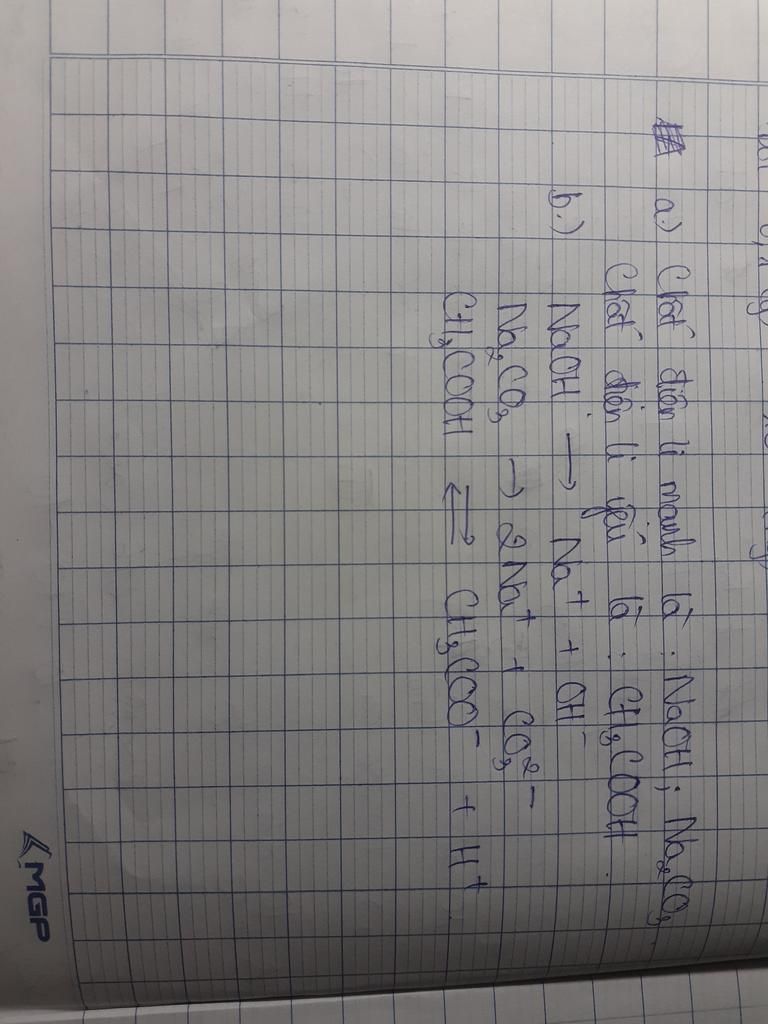 a.) Chất điện li mạnh là : NaOH ; Na₂CO₃.
Chất điện li yếu là : CH₃COOH.
b.) NaOH → Na⁺ + OH⁻
Na₂CO₃ → 2Na⁺ + CO₃²⁻
CH₃COOH ⇌ CH₃COO⁻ + H⁺
MGP